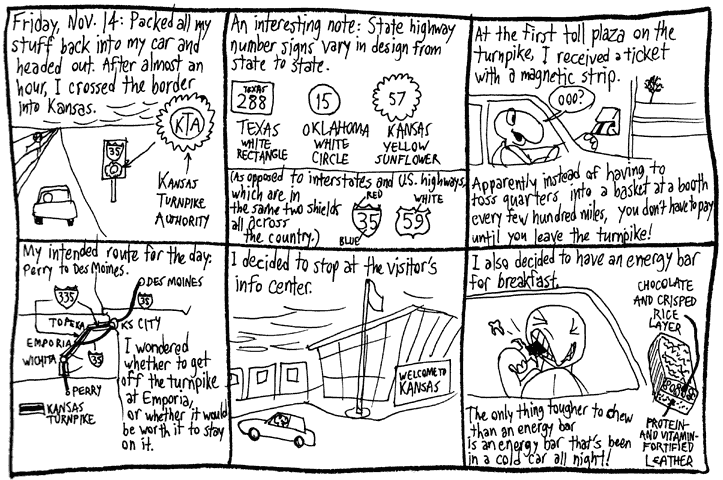 Friday, Nov. 14: Packed all my
stuff back into my car and
headed out. After almost an
hour, I crossed the border
into Kansas.
35
KTA
KANSAS
TURNPIKE
AUTHORITY
An interesting note: State highway
number signs vary in design from
state to state.
TEXAS
288
15
57
TEXAS
WHITE
RECTANGLE
OKLAHOMA
WHITE
CIRCLE
KANSAS
YELLOW
SUNFLOWER
(As opposed to interstates and U.S. highways,
which are in
the same two shields
all across
the country.)
RED
35
BLUE
WHITE
59
At the first toll plaza on the
turnpike, I received a ticket
with a magnetic strip.
OOO?
Apparently instead of having to
toss quarters into a basket at a booth
every few hundred miles, you don't have to pay
until you leave the turnpike!
My intended route for the day:
Perry to Des Moines.
335
DES MOINES
35
TOPEKA
KS CITY
EMPORIA
WICHITA
35
PERRY
KANSAS
TURNPIKE
I wondered
whether to get
off the turnpike
at Emporia,
or whether it would
be worth it to stay
on it.
I decided to stop at the visitor's
info center.
WELCOME TO
KANSAS
I also decided to have an energy bar
for breakfast.
CHOCOLATE
AND CRISPED
RICE
LAYER
The only thing tougher to chew
than an energy bar
is an energy bar that's been
in a cold car all night!
PROTEIN-
AND VITAMIN-
FORTIFIED
LEATHER